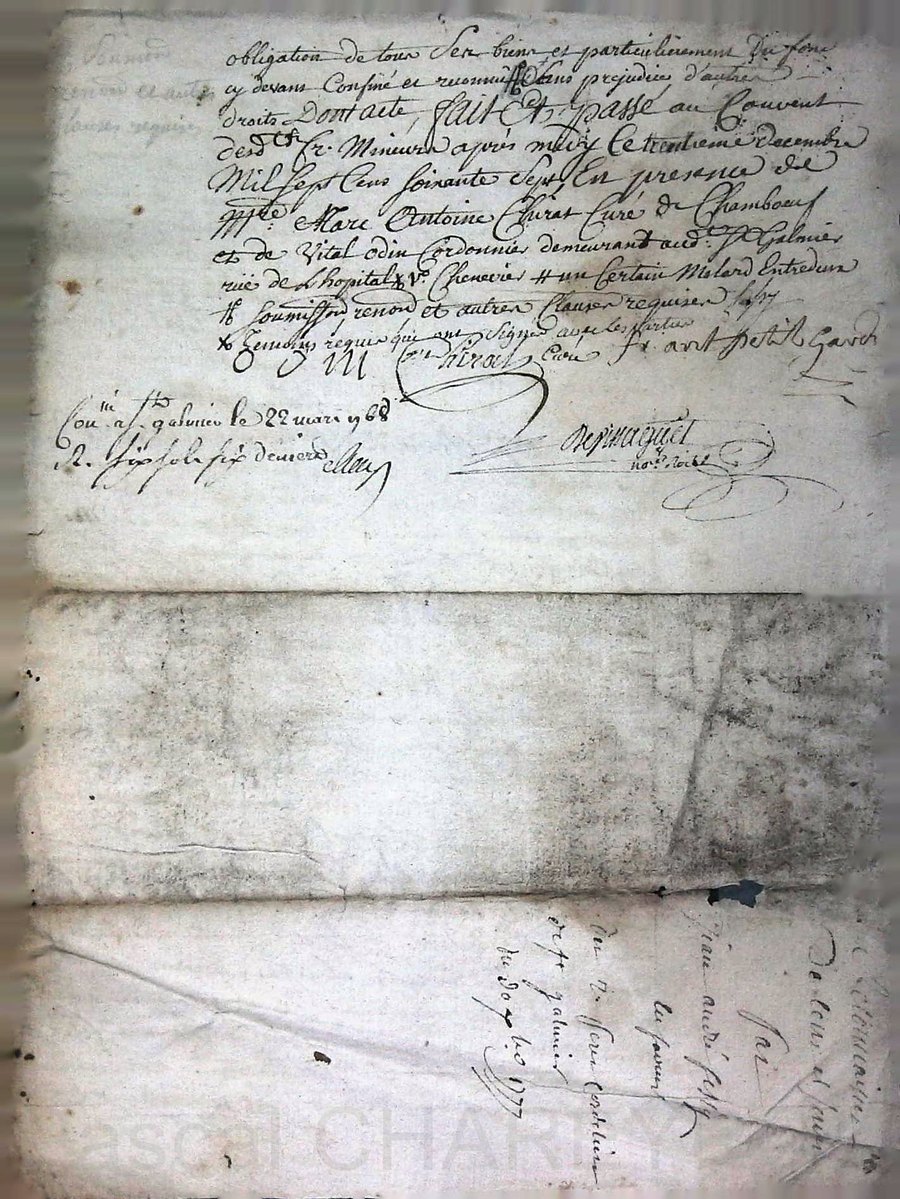 obligation de tous ses biens et particulierement du fond
cy devant Confiné et reconnu # sans prejudice d'autres
droits Dont acte, fait Et passé au Couvent
desd. Fr. Mineurs après midy Ce trentieme decembre
Mil sept Cens soixante sept, En presence de
Mre. Marc Antoine Chirat Curé de Chamboeuf
et de Vital odin Cordonnier demeurant aud. St Galmier
ruë de Lhopital x Chenevier # un Certain Molard Entredeux
# soumission renon et autres Clauses requises
x temoins requis qui ont signé avec les parties
Chirat Curé fr. ant petit Gard
Con. a St. galmier le 22 mars 1768
R. six sols six deniers
not. Roial
Reconnaissance
De cens et
par
jean andré
en faveur
des R. peres Cordeliers
de st galmier
du 30 xbre
ascal CHARLEY